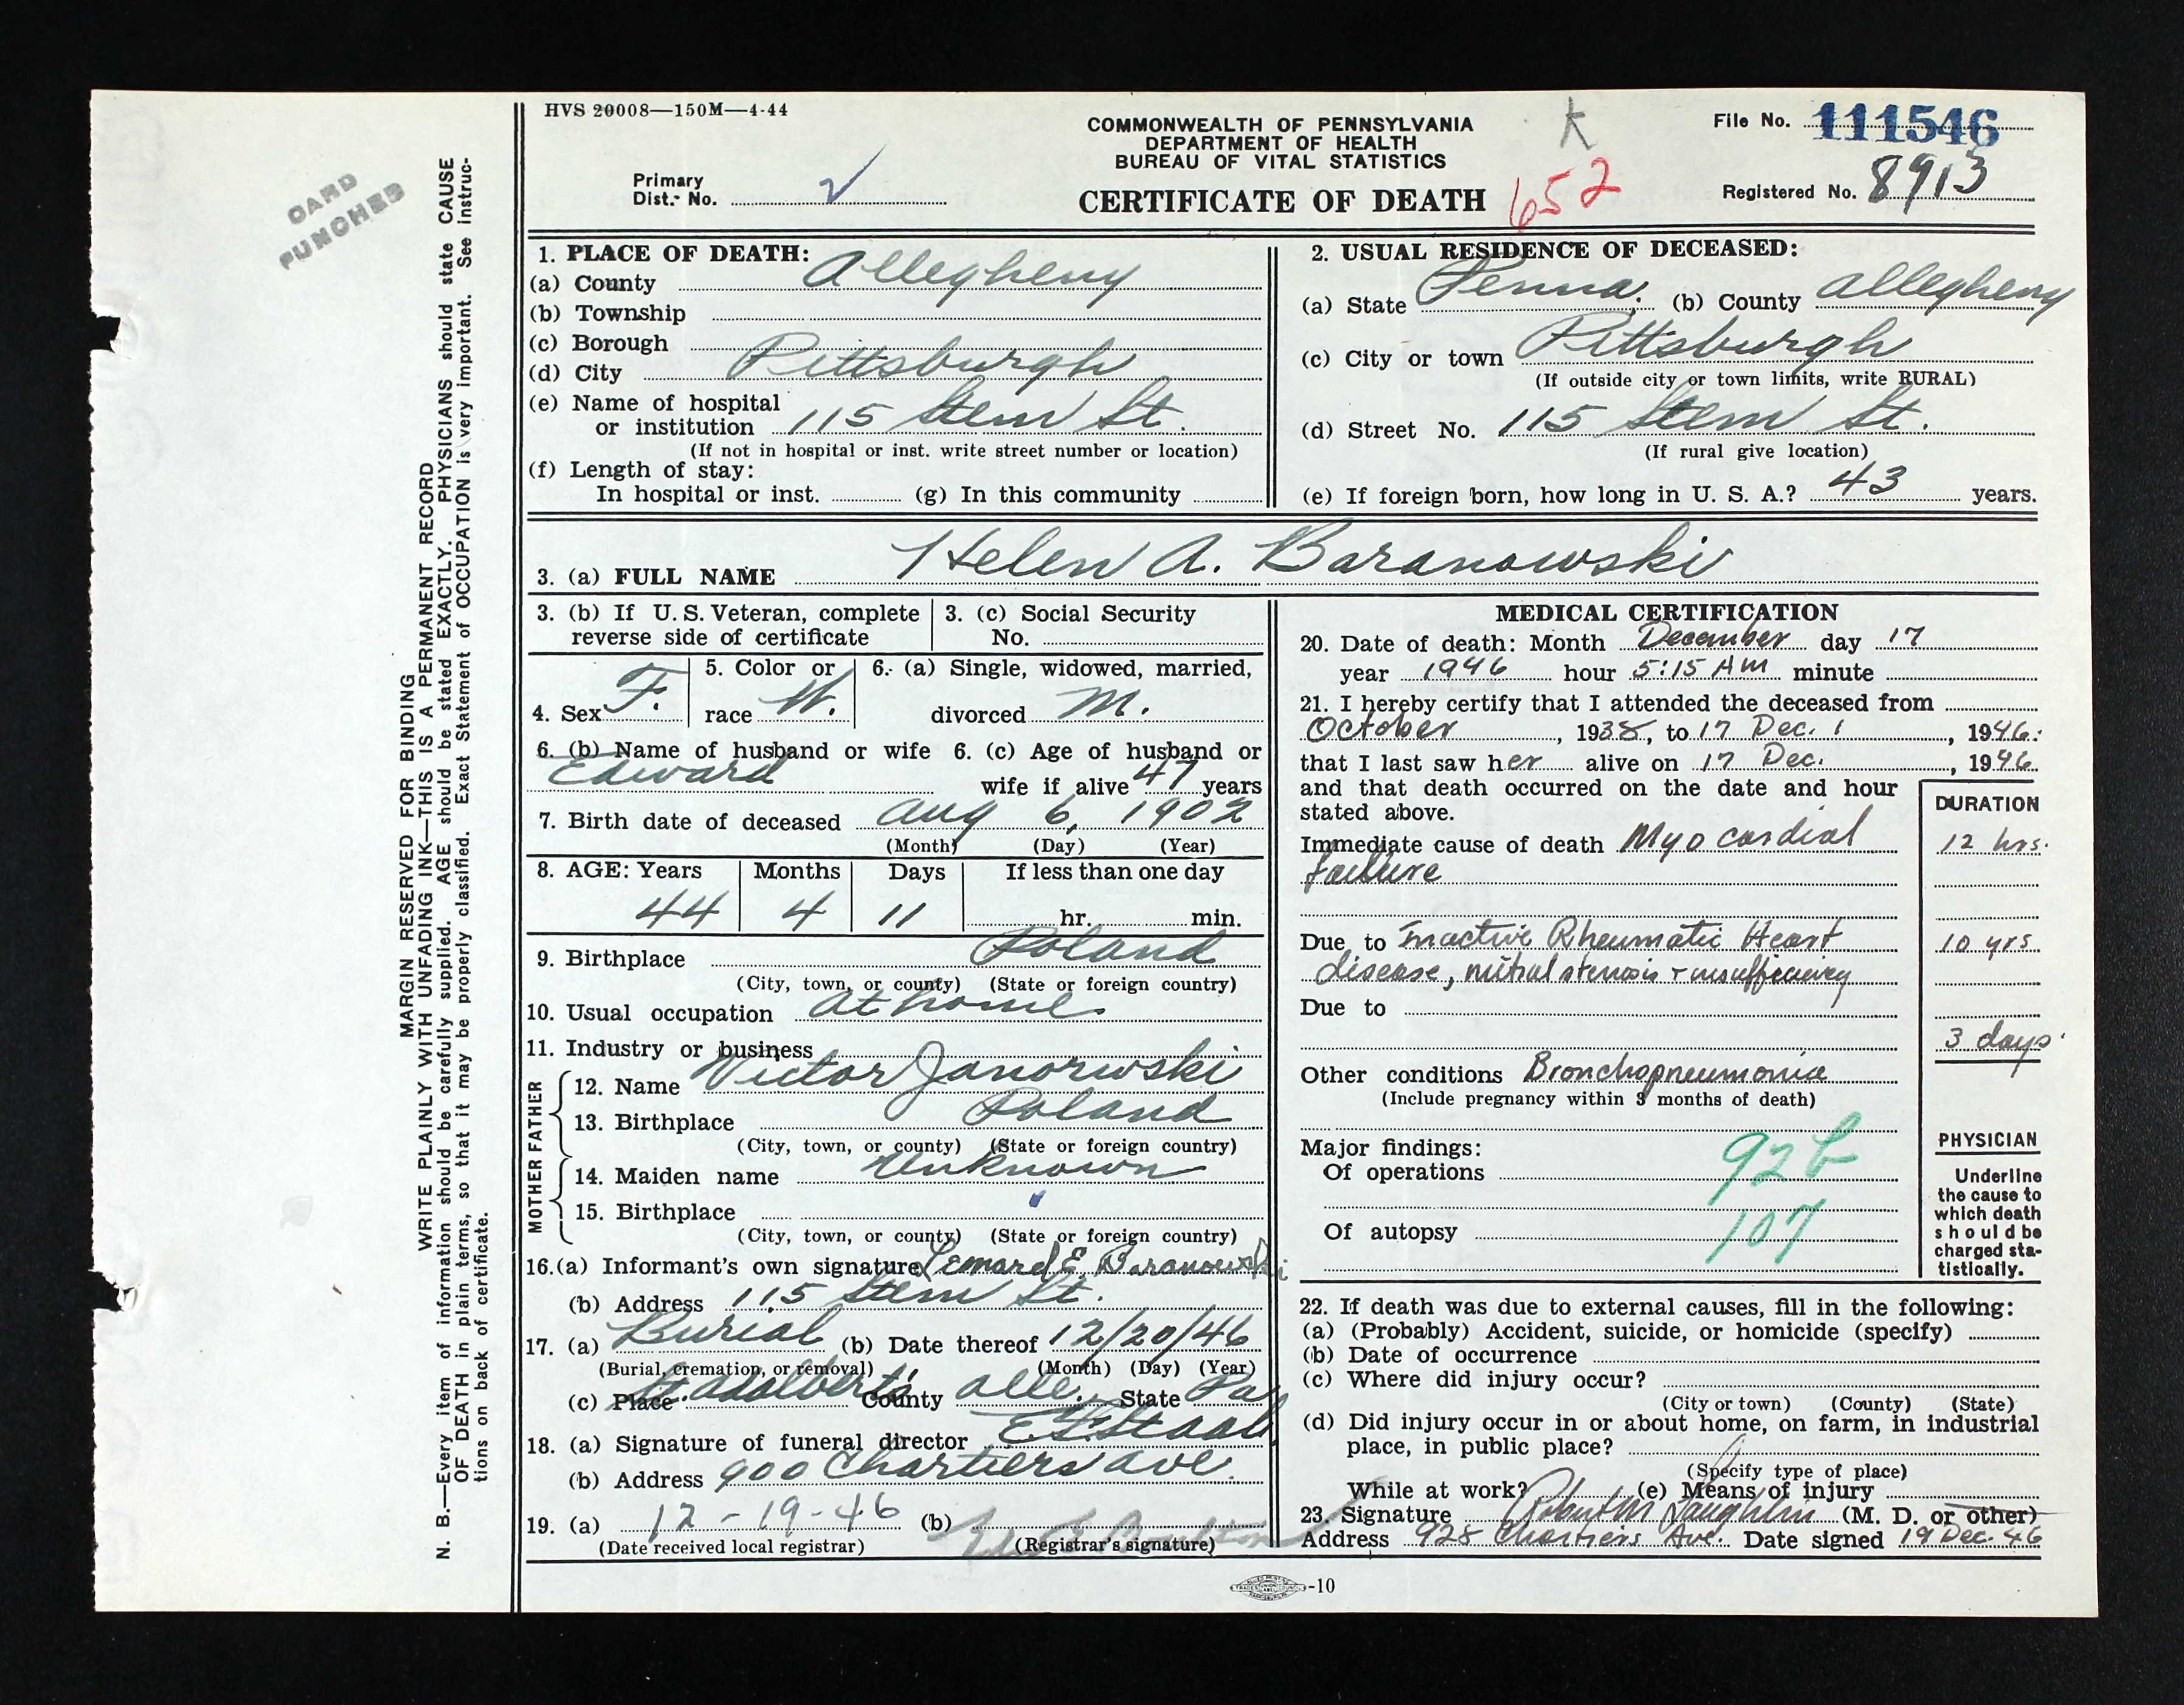 HVS 20008—150M—4-44
COMMONWEALTH OF PENNSYLVANIA
DEPARTMENT OF HEALTH
BUREAU OF VITAL STATISTICS
CERTIFICATE OF DEATH
K
652
File No. 111546
Registered No. 8913
Primary
Dist. No.
CARD
PUNCHED
MARGIN RESERVED FOR BINDING
WRITE PLAINLY WITH UNFADING INK—THIS IS A PERMANENT RECORD
N. B.—Every item of information should be carefully supplied. AGE should be stated EXACTLY. PHYSICIANS should state CAUSE
OF DEATH in plain terms, so that it may be properly classified. Exact Statement of OCCUPATION is very important. See instruc-
tions on back of certificate.
1. PLACE OF DEATH:
(a) County Allegheny
(b) Township
(c) Borough
(d) City Pittsburgh
(e) Name of hospital
or institution 115 Stem St.
(If not in hospital or inst. write street number or location)
(f) Length of stay:
In hospital or inst. (g) In this community
2. USUAL RESIDENCE OF DECEASED:
(a) State Penna. (b) County Allegheny
(c) City or town Pittsburgh
(If outside city or town limits, write RURAL)
(d) Street No. 115 Stem St.
(If rural give location)
(e) If foreign born, how long in U. S. A.? 43 years.
3. (a) FULL NAME Helen A. Baranowski
3. (b) If U. S. Veteran, complete
reverse side of certificate
3. (c) Social Security
No.
4. Sex F.
5. Color or
race W.
6. (a) Single, widowed, married,
divorced M.
6. (b) Name of husband or wife 6. (c) Age of husband or
Edward wife if alive 47 years
7. Birth date of deceased Aug 6, 1902
(Month) (Day) (Year)
8. AGE: Years Months Days If less than one day
44 4 11 hr. min.
9. Birthplace Poland
(City, town, or county) (State or foreign country)
10. Usual occupation at home
11. Industry or business
FATHER
12. Name Victor Janorwski
13. Birthplace Poland
(City, town, or county) (State or foreign country)
MOTHER
14. Maiden name Unknown
15. Birthplace
(City, town, or county) (State or foreign country)
16.(a) Informant's own signature E Baranowski
(b) Address 115 Stem St.
17. (a) Burial (b) Date thereof 12/20/46
(Burial, cremation, or removal) (Month) (Day) (Year)
(c) Place St. Adalberts County Alle. State Pa
18. (a) Signature of funeral director
(b) Address 900 Chartiers Ave.
19. (a) 12-19-46 (b)
(Date received local registrar) (Registrar's signature)
MEDICAL CERTIFICATION
20. Date of death: Month December day 17
year 1946 hour 5:15 AM minute
21. I hereby certify that I attended the deceased from
October, 1938, to 17 Dec., 1946:
that I last saw her alive on 17 Dec., 1946
and that death occurred on the date and hour
stated above.
DURATION
Immediate cause of death Myocardial 12 hrs.
failure
Due to Inactive Rheumatic Heart 10 yrs
disease, mitral stenosis + insufficiency
Due to
3 days
Other conditions Bronchopneumonia
(Include pregnancy within 3 months of death)
Major findings:
Of operations 92b
Of autopsy 107
PHYSICIAN
Underline
the cause to
which death
should be
charged sta-
tistically.
22. If death was due to external causes, fill in the following:
(a) (Probably) Accident, suicide, or homicide (specify)
(b) Date of occurrence
(c) Where did injury occur?
(City or town) (County) (State)
(d) Did injury occur in or about home, on farm, in industrial
place, in public place?
(Specify type of place)
While at work? (e) Means of injury
23. Signature Robert McLaughlin (M. D. or other)
Address 928 Chartiers Ave. Date signed 19 Dec. 46
-10